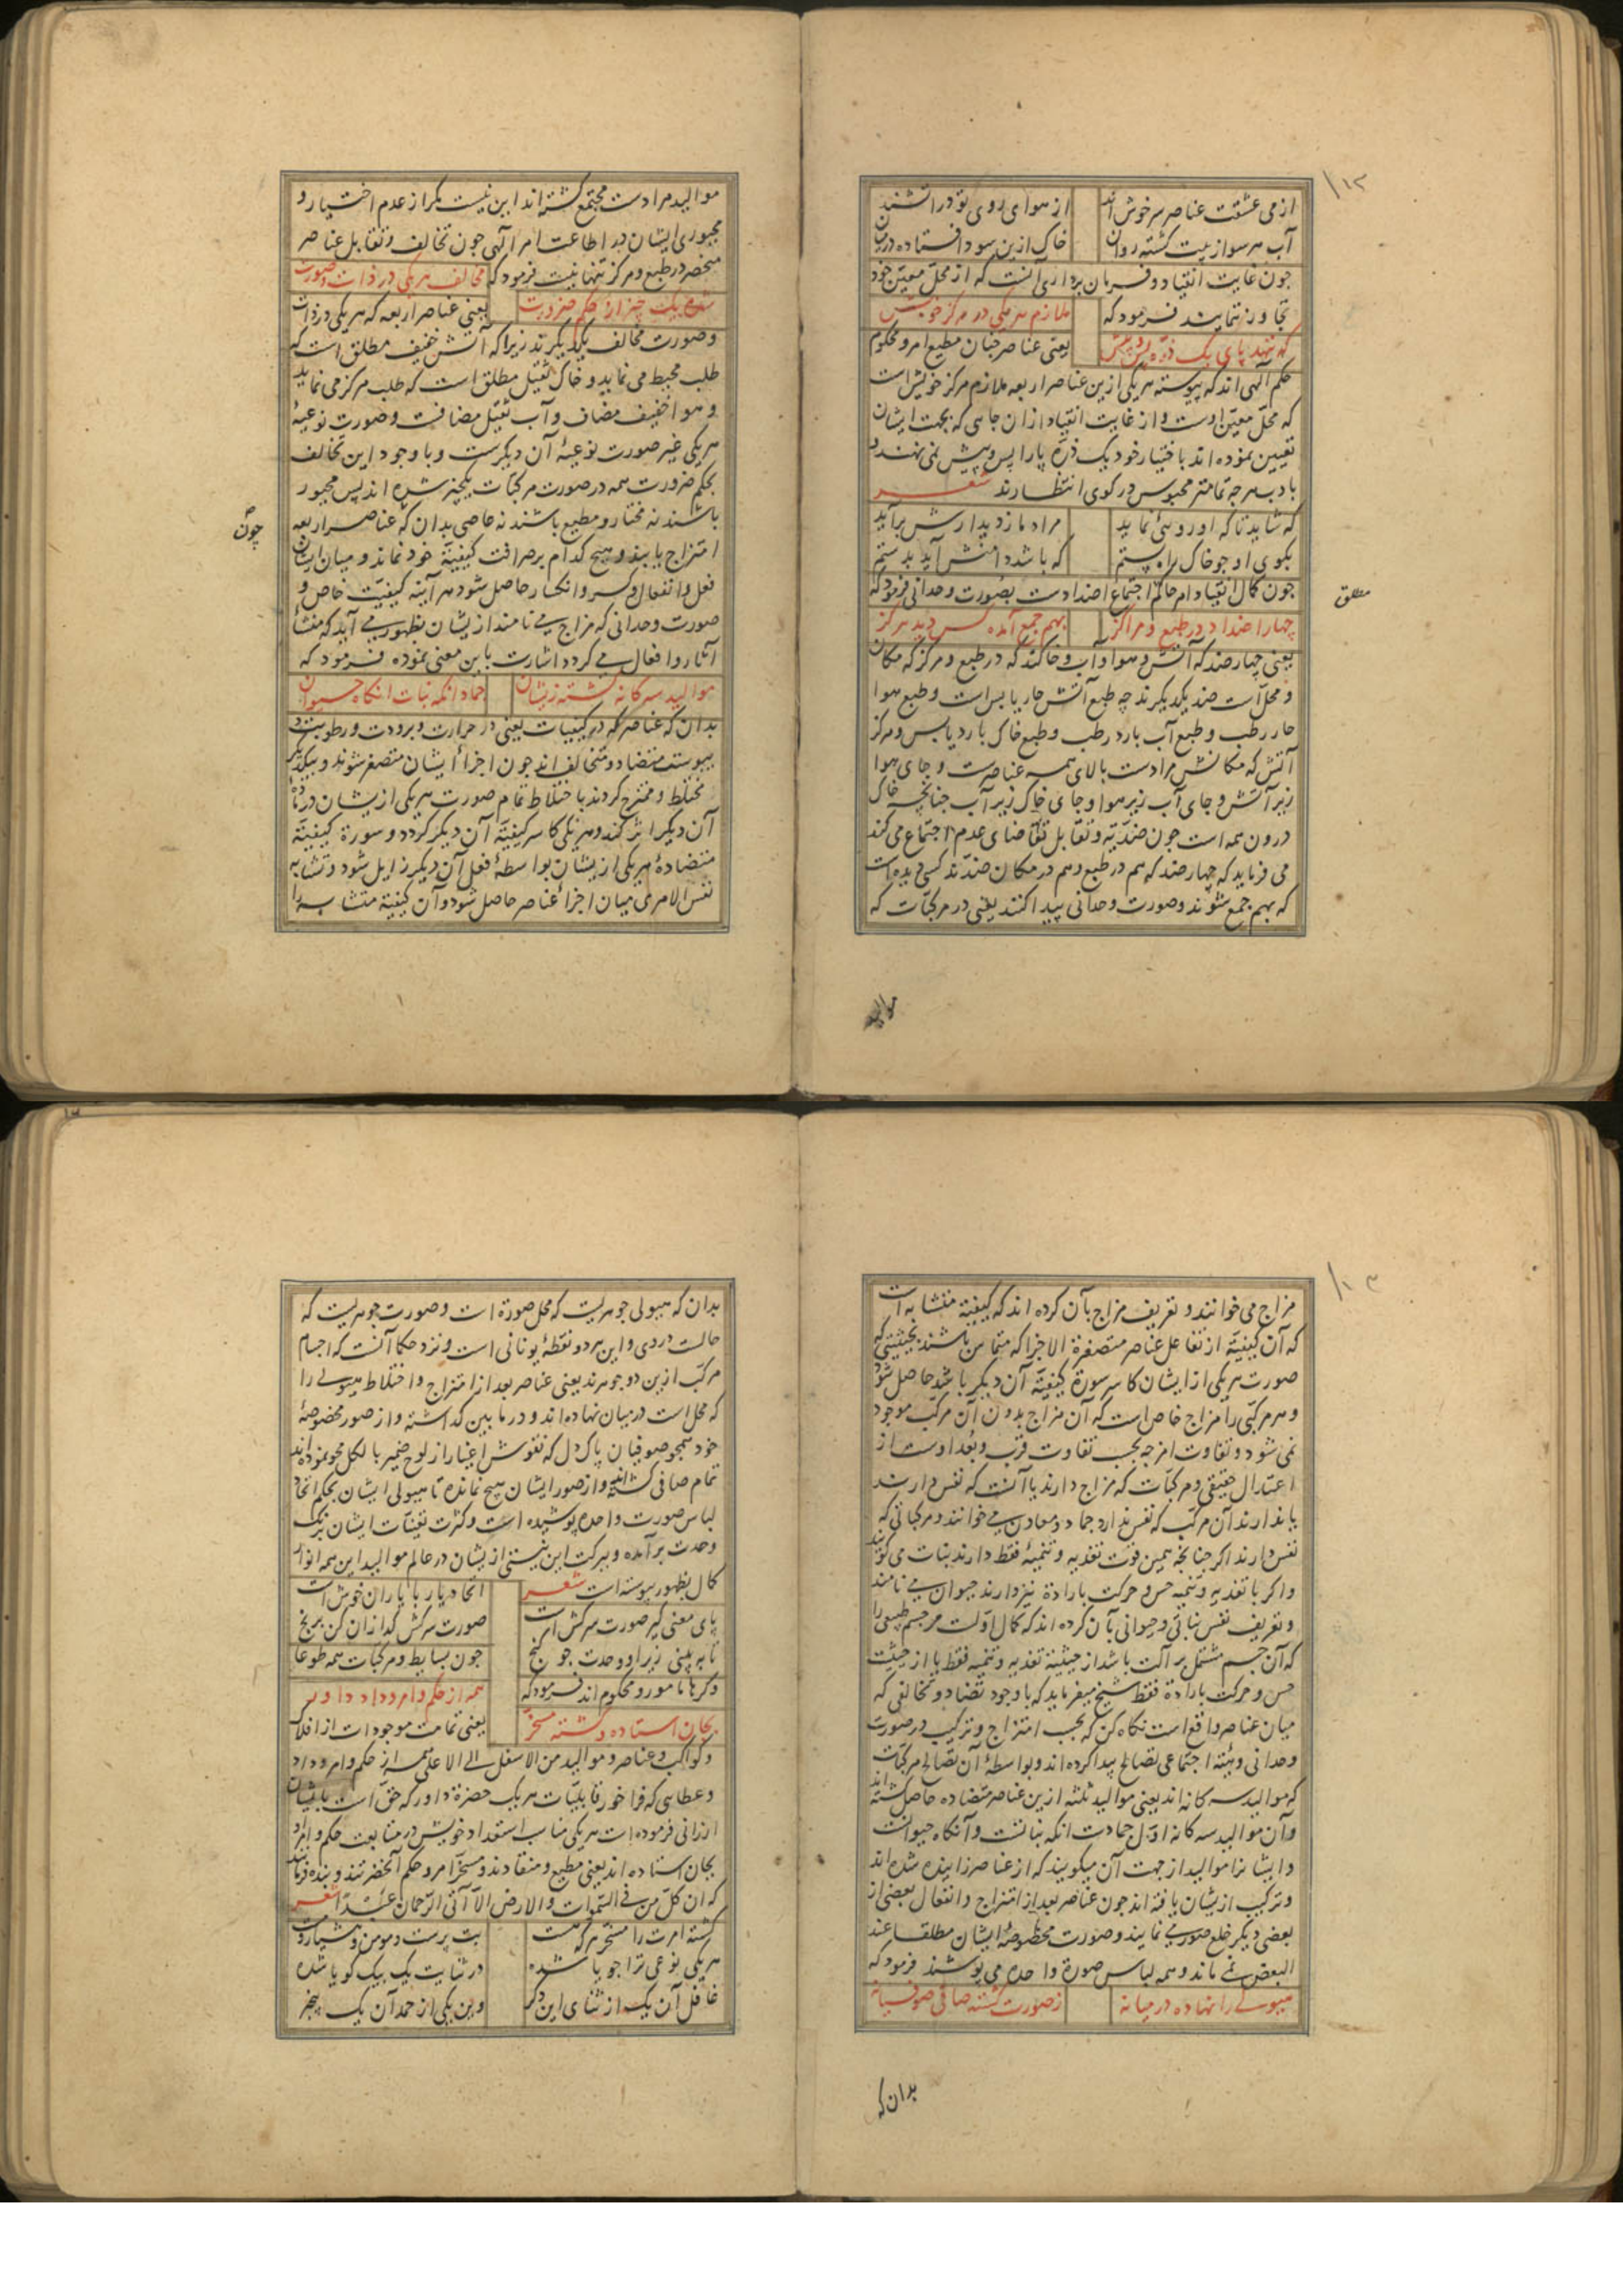 ۱۰۲
از می عشقت عناصر سرخوش اند از هوای روی تو در آتشند
آب هر سو از پیت گشته روان خاک ازین سودا فتاده در میان
چون غایت انقیاد و فرمان برداری آنست که از محل معین خود
تجاوز ننمایند فرمود که ملازم هر یکی در مرکز خویش
که ننهد پای یک ذره پس و پیش یعنی عناصر چنان مطیع امر و محکوم
حکم الهی اند که پیوسته هر یکی ازین عناصر اربعه ملازم مرکز خویش است
که محل معین اوست و از غایت انقیاد از ان جایی که بجهت ایشان
تعیین نموده اند باختیار خود یک ذره پا را پس و پیش نمی نهند و
با دب هرچه تمامتر محبوس در کوی انتظارند شعر
که شاید ناکه او رویی نماید مراد ما ز دیدارش برآید
بکوی او چو خاک راه پستم که باشد دامنش آید بدستم
چون کمال انقیاد امر حاکم اجتماع اضدادست بصورت وحدانی فرمود که
مطلق
چهار اضداد در طبع و مراکز بهم جمع آمده کس دید هرگز
یعنی چهار ضد که آتش و هوا و آب و خاکند که در طبع و مرکز که مکان
و محل است ضد یکدیگرند چه طبع آتش حار یابس است و طبع هوا
حار رطب و طبع آب بارد رطب و طبع خاک بارد یابس و مرکز
آتش که مکانش مرادست بالای همه عناصرست و جای هوا
زیر آتش و جای آب زیر هوا و جای خاک زیر آب چنانچه خاک
درون همه است چون ضدیه و تقابل تقاضای عدم اجتماع می کند
می فرماید که چهار ضد که هم در طبع و هم در مکان ضدند کسی دیده است
که بهم جمع شوند و صورت وحدانی پیدا کنند یعنی در مرکبات که
موالید
موالید مرادست مجتمع گشته اند این نیست مگر از عدم اختیار و
مجبوری ایشان در اطاعت امر الهی چون تخالف و تقابل عناصر
منحصر در طبع و مرکز تنها نیست فرمود که مخالف هر یکی در ذات و صورت
شده یک چیز از حکم ضرورت یعنی عناصر اربعه که هر یکی در ذات
و صورت مخالف یکدیگرند زیرا که آتش خفیف مطلق است که
طلب محیط می نماید و خاک ثقیل مطلق است که طلب مرکز می نماید
و هوا خفیف مضاف و آب ثقیل مضافست و صورت نوعیهٔ
هر یکی غیر صورت نوعیهٔ آن دیگرست و با وجود این تخالف
بحکم ضرورت همه در صورت مرکبات یکچیز شده اند پس مجبور
باشند نه مختار و مطیع باشند نه عاصی بدان که عناصر اربعه
چون
امتزاج یابند و هیچ کدام بر صرافت کیفیة خود نماند و میان ایشان
فعل و انفعال و کسر و انکسار حاصل شود هر آینه کیفیت خاص و
صورت وحدانی که مزاج می نامند از یشان بظهور می آید که منشأ
آثار و افعال می گردد اشارت باین معنی نموده فرمود که
موالید سه کانه گشته زیشان جماد آنکه نبات آنکاه حیوان
بدان که عناصر که در کیفیات یعنی در حرارت و برودت و رطوبت و
یبوست متضاد و متخالف اند چون اجزاء ایشان متصغر شوند و بیکدیگر
مختلط و ممتزج گردند باختلاط تمام صورت هر یکی از یشان در مادهٔ
آن دیگر اثر کند و هر یکی کاسر کیفیة آن دیگر گردد و سورة کیفیة
متضادهٔ هر یکی از یشان بواسطهٔ فعل آن دیگر زایل شود و تشابه
نفس الامری میان اجزاء عناصر حاصل شود و آن کیفیة متشابه را
۱۰۳
مزاج می خوانند و تعریف مزاج بآن کرده اند که کیفیة متشابه است
که آن کیفیة از تفاعل عناصر متصغرة الاجزا که متماس باشند بحیثیتی که
صورت هر یکی از ایشان کاسر سورة کیفیة آن دیگر باشد حاصل شود
و هر مرکبی را مزاج خاص است که آن مزاج بدون آن مرکب موجود
نمی شود و تفاوت امزجه بحسب تفاوت قرب و بعد اوست از
اعتدال حقیقی و مرکبات که مزاج دارند یا آنست که نفس دارند
یا ندارند آن مرکب که نفس ندارد جماد و معادن می خوانند و مرکباتی که
نفس دارند اگر چنانچه همین قوت تغذیه و تنمیهٔ فقط دارند نبات می گویند
و اگر با تغذیه و تنمیه حس و حرکت بارادة نیز دارند حیوان می نامند
و تعریف نفس نباتی و حیوانی بآن کرده اند که کمال اولست مر جسم طبیعی را
که آن جسم مشتمل بر آلت باشد از حیثیة تغذیه و تنمیه فقط یا از حیثیت
حس و حرکت بارادة فقط شیخ میفرماید که با وجود تضاد و تخالفی که
میان عناصر واقع است نکاه کن که بحسب امتزاج و ترکیب در صورت
وحدانی و هیئة اجتماعی تصالح پیدا کرده اند و بواسطهٔ آن تصالح مرکبات
که موالید سه کانه اند یعنی موالید ثلثه ازین عناصر متضاده حاصل گشته اند
و آن موالید سه کانه اول جمادست آنکه نباتست و آنکاه حیوانست
و ایشانرا موالید از جهت آن میگویند که از عناصر زاییده شده اند
و ترکیب از یشان یافته اند چون عناصر بعد از امتزاج و انفعال بعضی از
بعضی دیگر خلع صور می نمایند و صورت مخصوصهٔ ایشان مطلقا عند
البعض نمی ماند و همه لباس صورة واحده می پوشند فرمود که
هیولی را نهاده در میانه ز صورت گشته صافی صوفیانه
بدان که
بدان که هیولی جوهریست که محل صورة است و صورت جوهریست که
حالست در وی و این هر دو لفظهٔ یونانی است و نزد حکما آنست که اجسام
مرکب ازین دو جوهرند یعنی عناصر بعد از امتزاج و اختلاط هیولی را
که محل است در میان نهاده اند و در مابین گذاشته و از صور مخصوصهٔ
خود همچو صوفیان پاک دل که نقوش اغیار از لوح ضمیر بالکل محو نموده اند
تمام صافی گشته اند و از صور ایشان هیچ نمانده تا هیولی ایشان بحکم اتحاد
لباس صورت واحده پوشیده است و کثرت تعینات ایشان برنک
وحدت برآمده و ببرکت این نیستی از یشان در عالم موالید این همه انوار
کمال بظهور پیوسته است شعر اتحاد یار با یاران خوش است
پای معنی گیر صورت سرکش است صورت سرکش گدازان کن برنج
تا ببینی زیر او وحدت چو گنج چون بسایط و مرکبات همه طوعا
و کرها مامور و محکوم اند فرمود که همه از حکم و امر و داد داور
بجان استاده و گشته مسخر یعنی تمامت موجودات از افلاک
و کواکب و عناصر و موالید من الاسفل الی الاعلی همه از حکم و امر و داد
و عطایی که فراخور قابلیات هر یک حضرة داور که حق است بایشان
ارزانی فرموده است هر یکی مناسب استعداد خویش در متابعت حکم و امر او
بجان استاده اند یعنی مطیع و منقادند و مسخر امر و حکم آنحضرتند و بنده فرمانند
که ان کل من فی السموات والارض الا آتی الرحمان عبدا شعر
گشته امرت را مسخر هر که هست بت پرست و مومن و هشیار و مست
هر یکی نوعی ترا جویا شده در ثنایت یک بیک گویا شده
غافل آن یک از ثنای این دگر وین یکی از حمد آن یک بیخبر